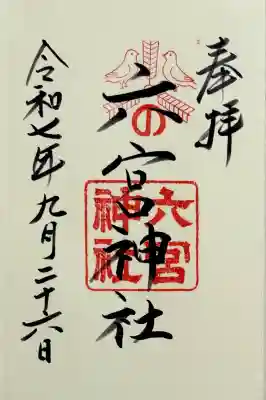 奉拝
六の宮神社
六宮神社
令和七年九月二十六日